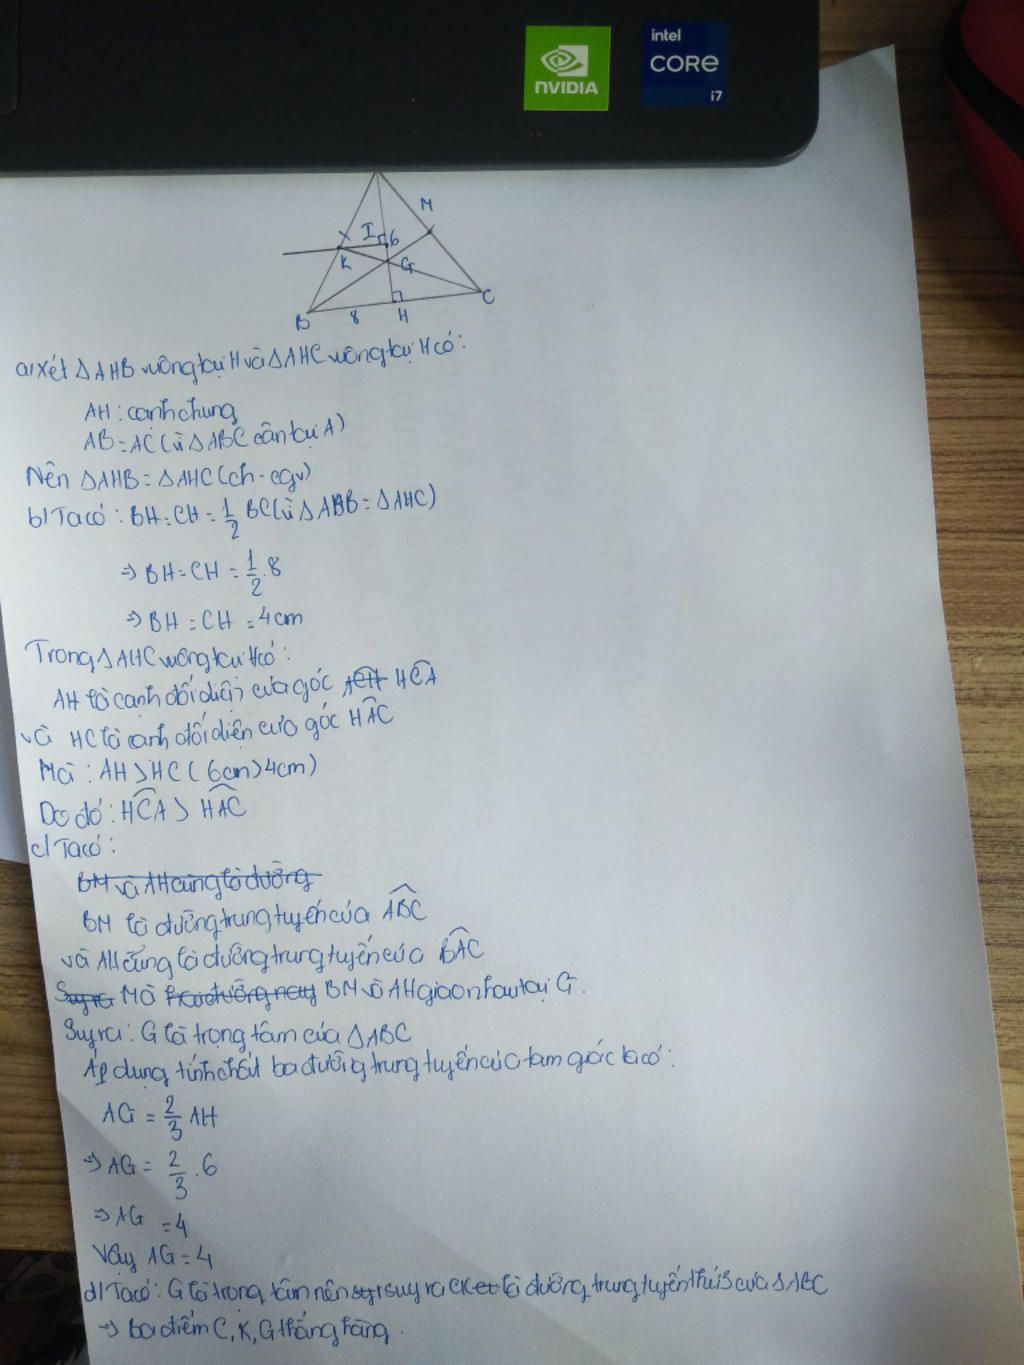 NVIDIA
intel
CORE
i7
M
I
6
K
G
C
B
8
H
a/ Xét ΔAHB vuông tại H và ΔAHC vuông tại H có:
AH: cạnh chung
AB = AC (vì ΔABC cân tại A)
Nên ΔAHB = ΔAHC (ch - cgv)
b/ Ta có: BH = CH = 1/2 BC (vì ΔAHB = ΔAHC)
=> BH = CH = 1/2 . 8
=> BH = CH = 4cm
Trong ΔAHC vuông tại H có:
AH là cạnh đối diện của góc HCA
và HC là cạnh đối diện của góc HAC
Mà: AH > HC (6cm > 4cm)
Do đó: HCA > HAC
c/ Ta có:
BM và AH cùng là đường
BM là đường trung tuyến của ABC
và AH cũng là đường trung tuyến của BAC
Suy ra Mà hai đường này BM và AH giao nhau tại G.
Suy ra: G là trọng tâm của ΔABC
Áp dụng tính chất ba đường trung tuyến của tam giác ta có:
AG = 2/3 AH
=> AG = 2/3 . 6
=> AG = 4
Vậy AG = 4
d/ Ta có: G là trọng tâm nên suy ra CK là đường trung tuyến thứ 3 của ΔABC
=> ba điểm C, K, G thẳng hàng.